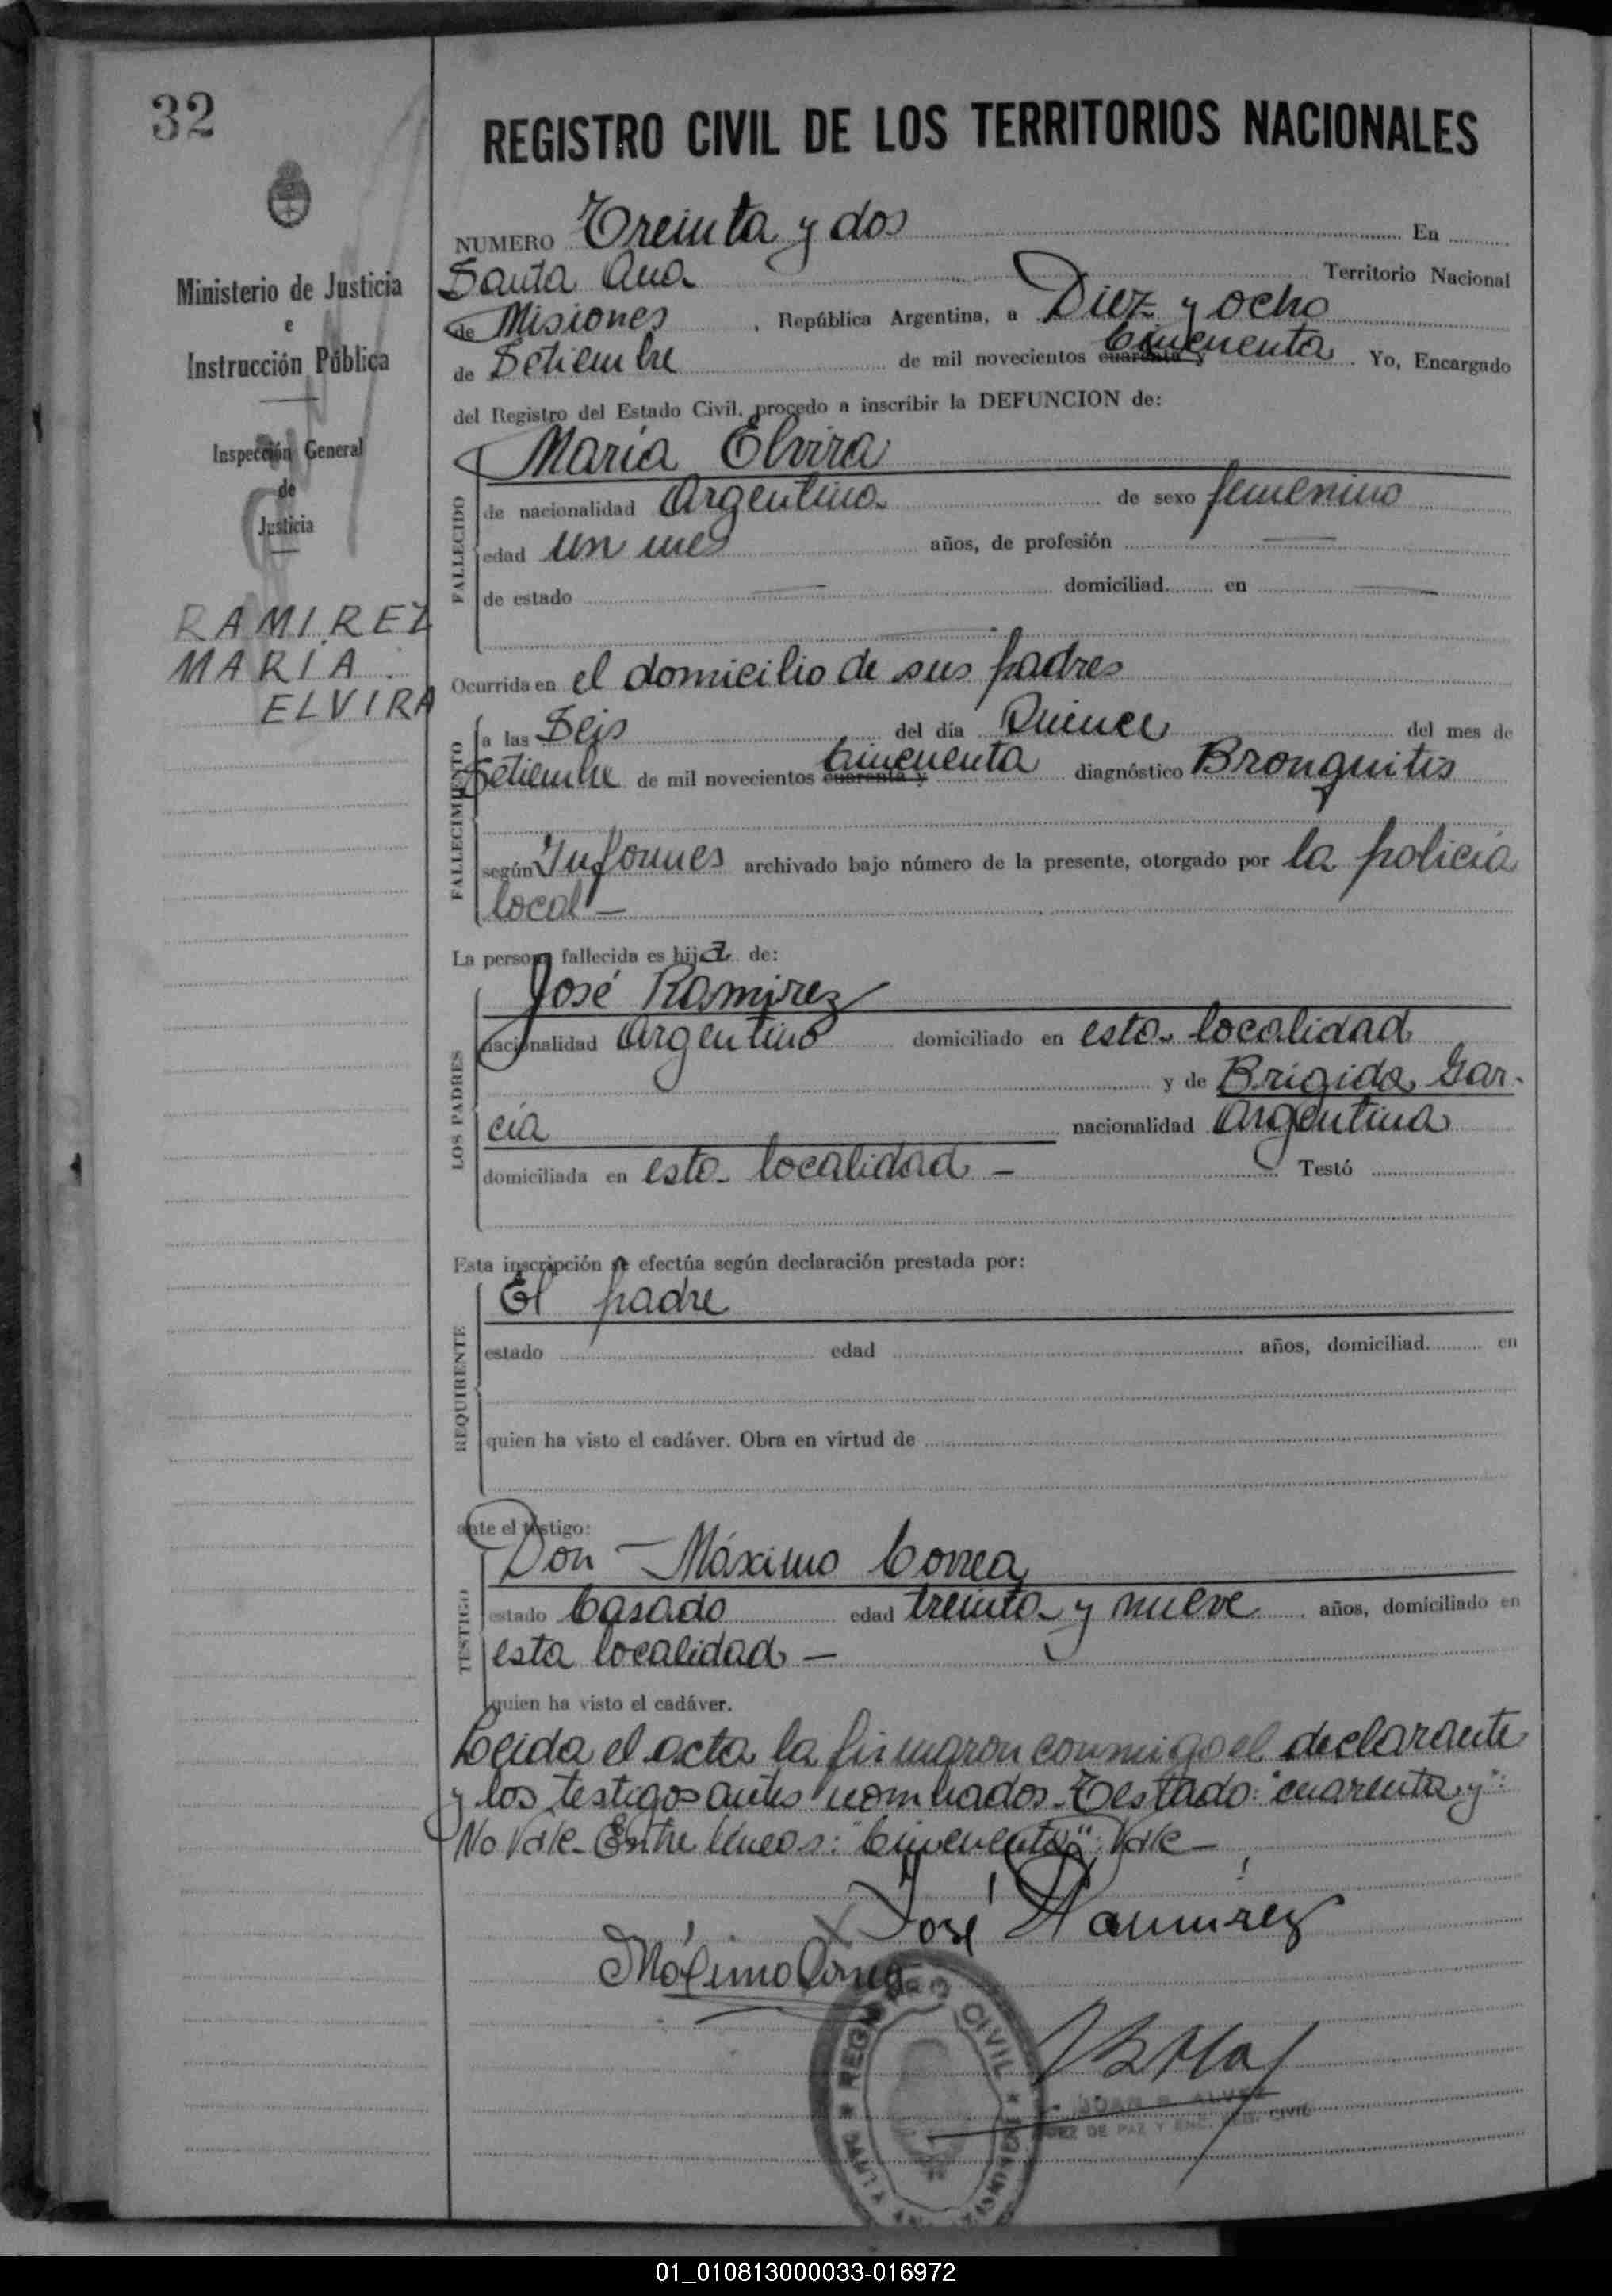 32
REGISTRO CIVIL DE LOS TERRITORIOS NACIONALES
Ministerio de Justicia
e
Instrucción Pública
Inspección General
de
Justicia
RAMIREZ
MARIA
ELVIRA
NUMERO Treinta y dos En
Santa Ana Territorio Nacional
de Misiones, República Argentina, a Diez y ocho
de Setiembre de mil novecientos cuarenta y Cincuenta Yo, Encargado
del Registro del Estado Civil, procedo a inscribir la DEFUNCION de:
FALLECIDO
María Elvira
de nacionalidad Argentina de sexo femenino
edad un mes años, de profesión —
de estado — domiciliad en —
Ocurrida en el domicilio de sus padres
FALLECIMIENTO
a las Seis del día Quince del mes de
Setiembre de mil novecientos cuarenta y Cincuenta diagnóstico Bronquitis
según Informes archivado bajo número de la presente, otorgado por la policía
local —
La persona fallecida es hija de:
LOS PADRES
José Ramirez
nacionalidad Argentino domiciliado en esta localidad
y de Brigida Gar-
cía nacionalidad Argentina
domiciliada en esta localidad — Testó
Esta inscripción se efectúa según declaración prestada por:
REQUIRENTE
El padre
estado edad años, domiciliad en
quien ha visto el cadáver. Obra en virtud de
ante el testigo:
TESTIGO
Don — Máximo Correa
estado Casado edad treinta y nueve años, domiciliado en
esta localidad —
quien ha visto el cadáver.
Leida el acta la firmaron conmigo el declarante
y los testigos antes nombrados. Testado: "cuarenta y":
No Vale. Entre líneas: "Cincuenta": Vale —
José Ramirez
Máximo Correa
REGISTRO CIVIL
JUAN B. ALVEZ
JUEZ DE PAZ Y ENC. REG. CIVIL
01_010813000033-016972